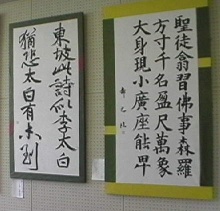 聖徒翁習佛事森羅
方寸千名盈尺萬象
大身現小廣座能卑
東坡此詩似李太白
猶恐太白有未到